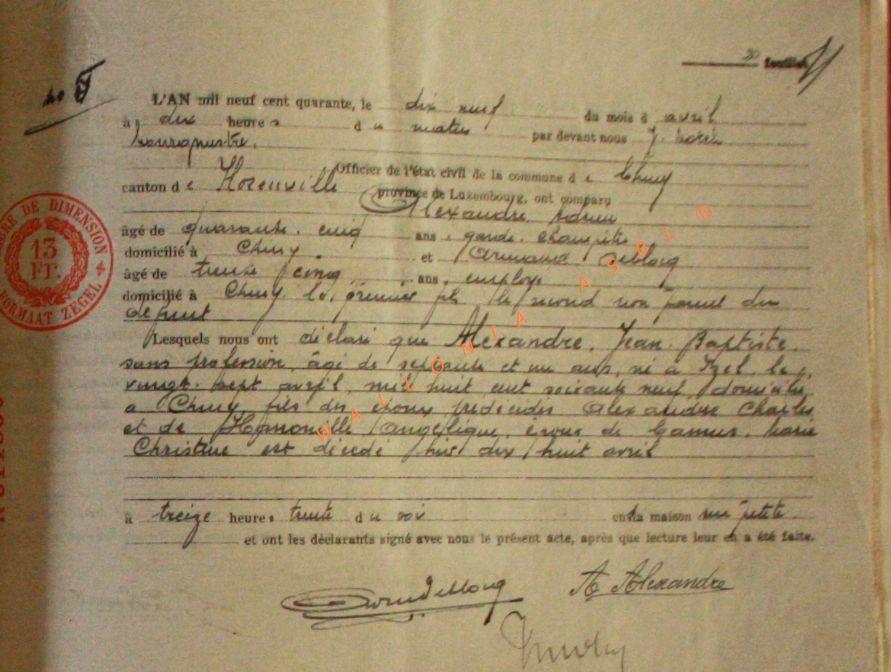 20
feuillet
no 6
L'AN mil neuf cent quarante, le dix neuf du mois d avril
à dix heures du matin par devant nous J.
bourgmestre,
Officier de l'état civil de la commune de Chiny
canton de Florenville province de Luxembourg, ont comparu
Alexandre Adrien
âgé de quarante cinq ans, garde champêtre
domicilié à Chiny et Armand Deblocq
âgé de trente cinq ans, employé
domicilié à Chiny, le premier fils le second non parent du
défunt
Lesquels nous ont déclaré que Alexandre, Jean Baptiste
sans profession, âgé de septante et un ans, né à Izel le
vingt sept avril mil huit cent soixante neuf, domicilié
à Chiny fils des époux prédécédés Alexandre Charles
et de Angélique, époux de Camus, Marie
Christine est décédé hier dix huit avril
à treize heures trente du soir en sa maison rue petite
et ont les déclarants signé avec nous le présent acte, après que lecture leur en a été faite.
Deblocq
A Alexandre
TIMBRE DE DIMENSION
13
FR.
FORMAAT ZEGEL
WALLONIA ASBL ®